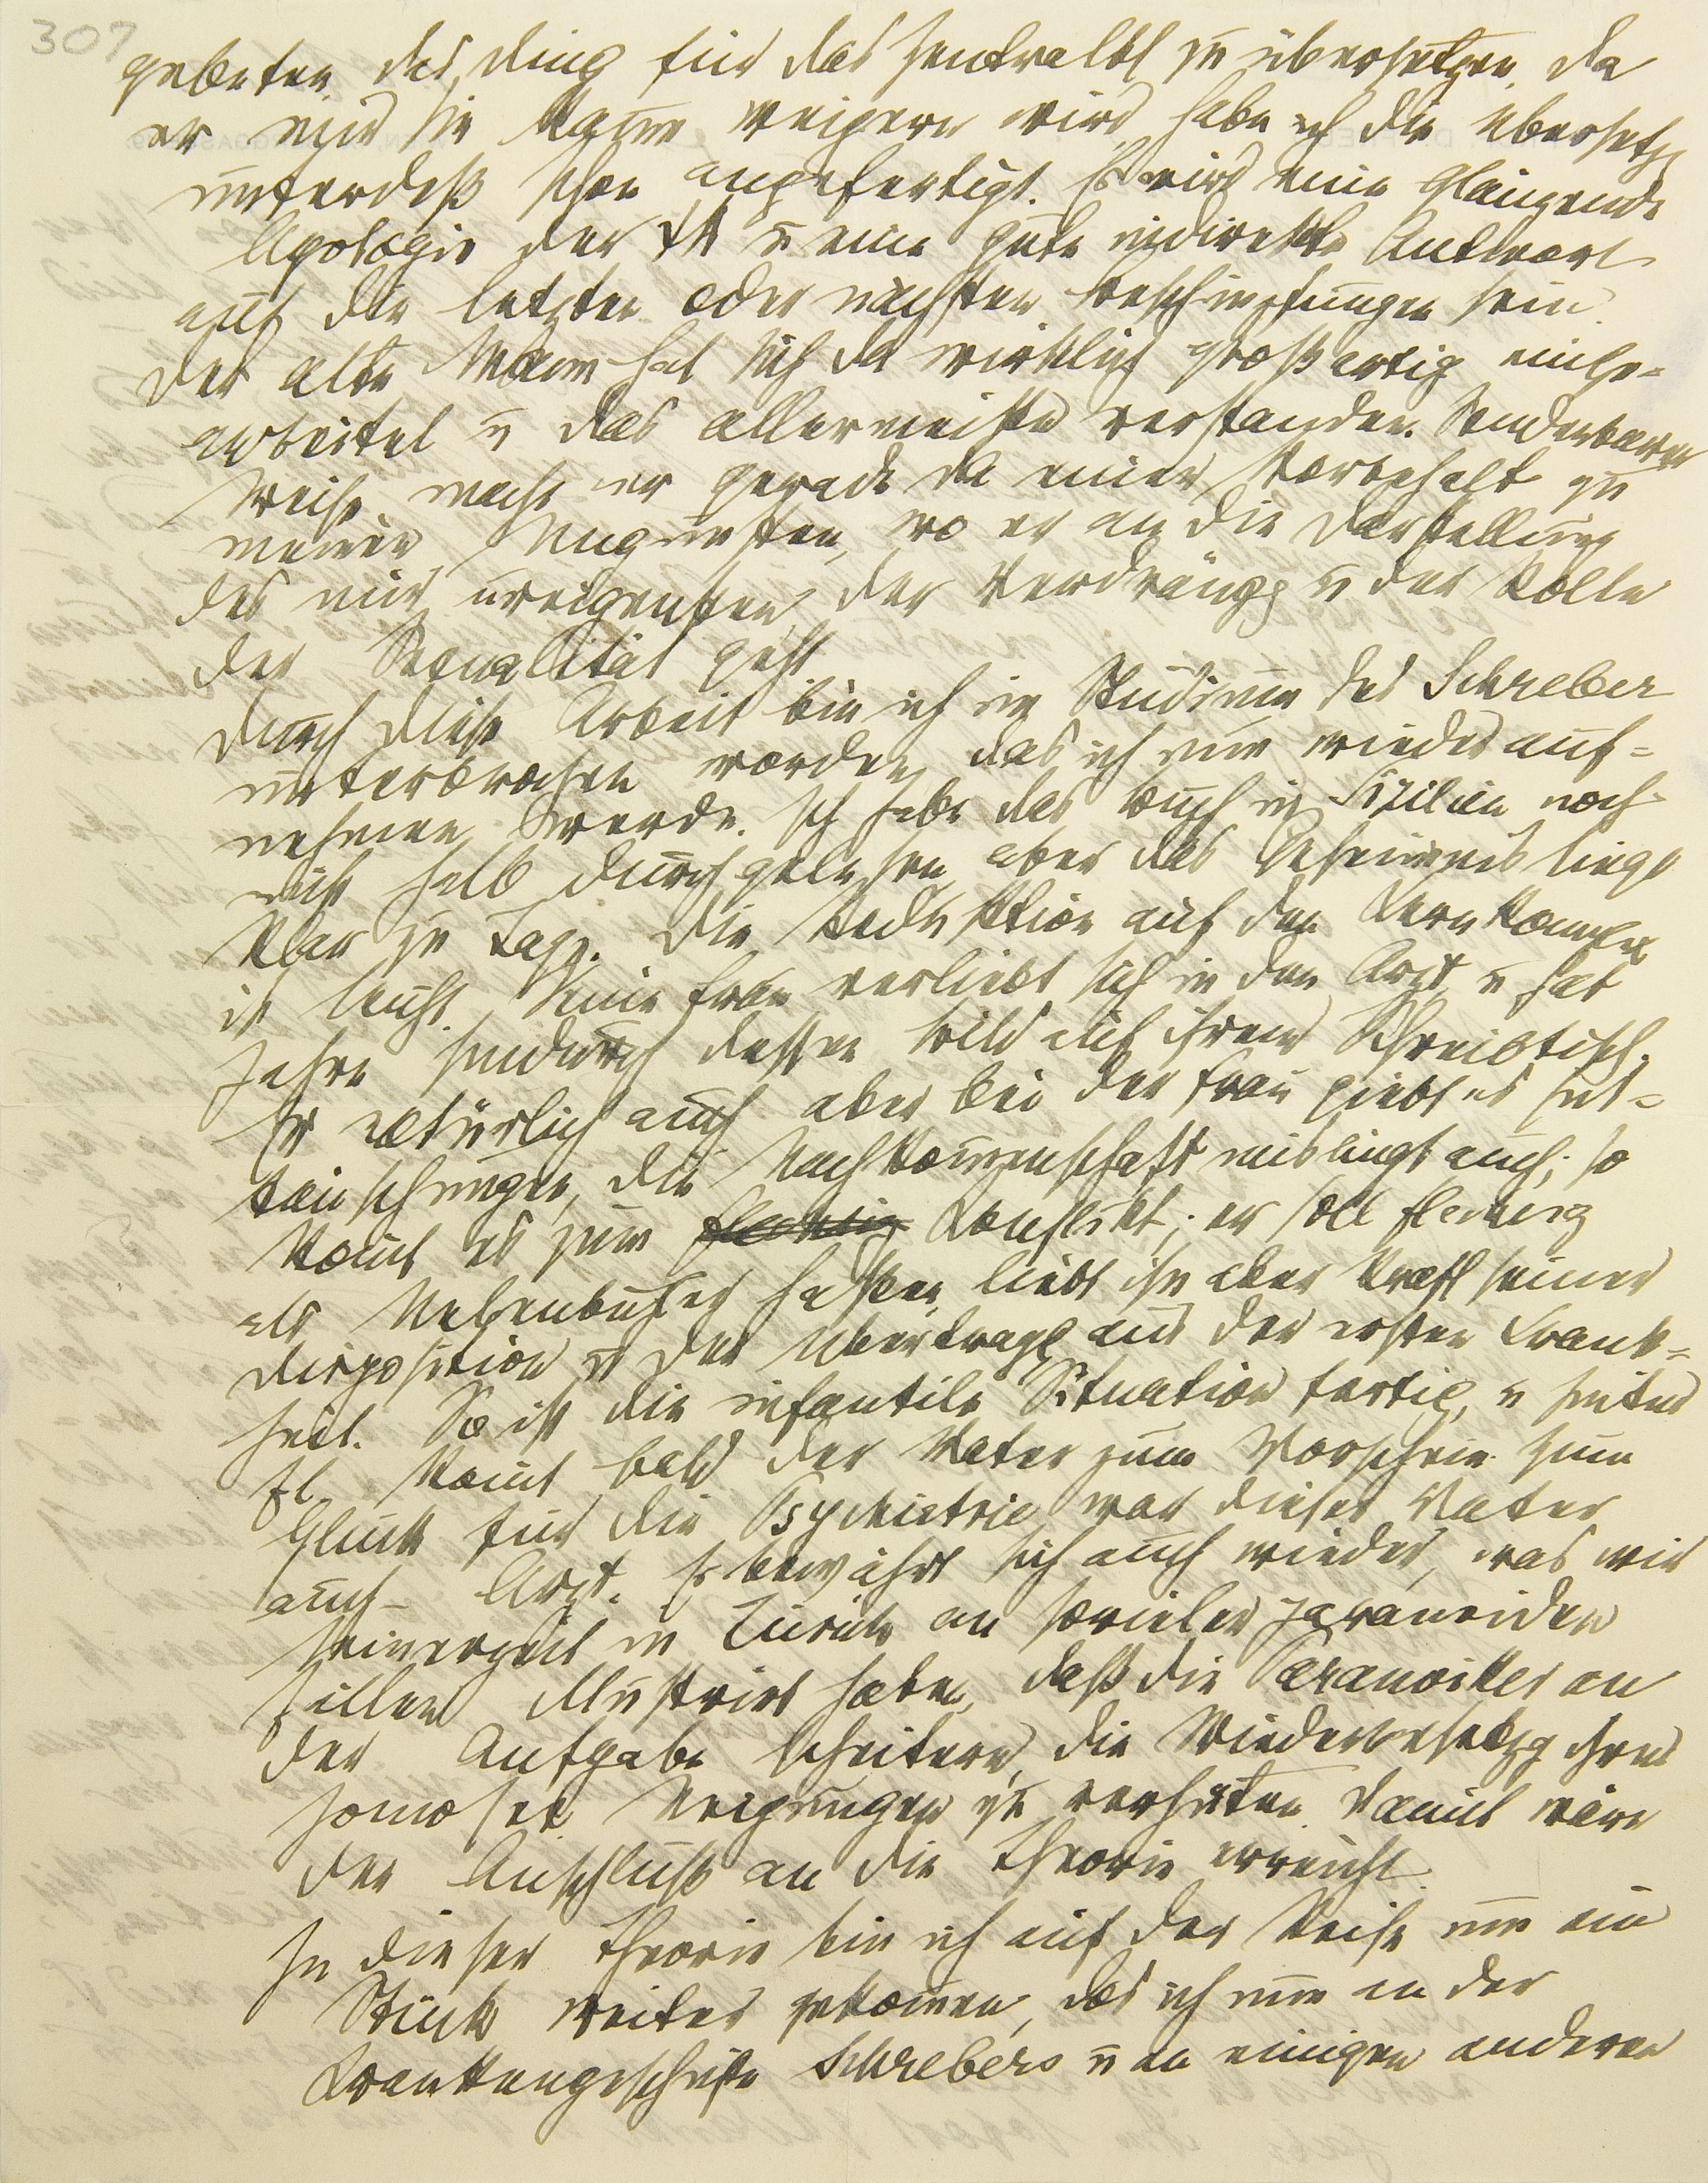 307
gebeten, das Ding für das Zentralbl zu übersetzen. Da
er mir sie kaum weigern wird, habe ich die Übersetzg
unterdeß schon angefertigt. Es wird eine glänzende
Apologie der ΨA u eine gute indirekte Antwort
auf die letzten oder nächsten Beschimpfungen sein.
Der alte Mann hat sich da wirklich großartig einge=
arbeitet u das allermeiste verstanden. Sonderbarer
Weise macht er gerade da einen Vorbehalt zu
meinen Ungunsten, wo er an die Darstellung
des mir ureigensten, der Verdrängg u der Rolle
der Sexualität geht.
Durch diese Arbeit bin ich im Studium des Schreber
unterbrochen worden, das ich nun wieder auf=
nehmen werde. Ich habe das Buch in Sizilien noch
nicht halb durchgelesen, aber das Geheimnis liegt
klar zu Tage. Die Reduktion auf den Kernkomplex
ist leicht. Seine Frau verliebt sich in den Arzt u hat
Jahre hindurch dessen Bild auf ihrem Schreibtisch.
Er natürlich auch, aber bei der Frau giebt es Ent=
täuschungen, die Nachkommenschaft mislingt auch; so
komt es zum Flechsig Konflikt; er soll Flechsig
als Nebenbuhler hassen, liebt ihn aber kraft seiner
Disposition u der Übertragg aus der ersten Krank=
heit. So ist die infantile Situation fertig, u hinter
Fl. komt bald der Vater zum Vorschein. Zum
Glück für die Psychiatrie war dieser Vater
auch – Arzt. Es bewährt sich auch wieder, was wir
seinerzeit in Zürich an sovielen paranoiden
Fällen illustrirt haben, daß die Paranoiker an
der Aufgabe scheitern, die Wiederbesetzg ihrer
homosex. Neigungen zu verhüten. Damit wäre
der Anschluß an die Theorie erreicht.
In dieser Theorie bin ich auf der Reise um ein
Stück weiter gekomen, das ich nun an der
Krankengeschichte Schrebers u an einigen anderen